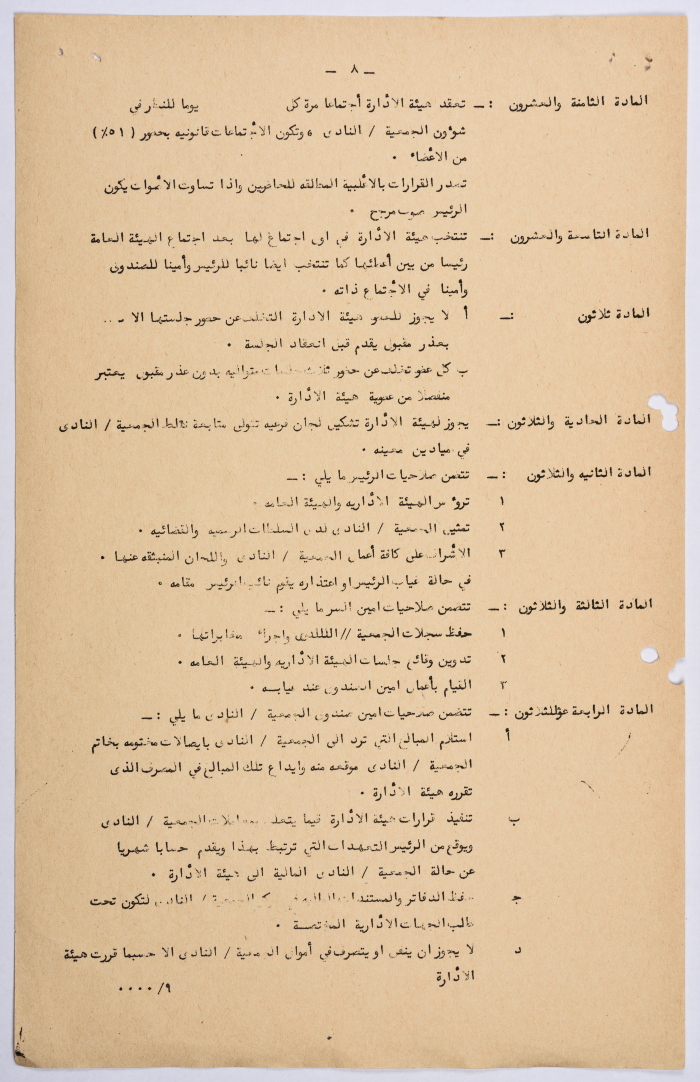 — ٨ —
المادة الثامنة والعشرون :— تعقد هيئة الادارة اجتماعا مرة كل يوما للنظر في
شؤون الجمعية / النادى ، وتكون الاجتماعات قانونيه بحضور ( ٥١٪ )
من الاعضاء .
تصدر القرارات بالاغلبية المطلقه للحاضرين واذا تساوت الاصوات يكون
الرئيس صوت مرجح .
المادة التاسعة والعشرون :— تنتخب هيئة الادارة في اول اجتماع لها بعد اجتماع الهيئة العامة
رئيسا من بين أعضائها كما تنتخب ايضا نائبا للرئيس وأمينا للصندوق
وأمينا في الاجتماع ذاته .
المادة ثلاثون :— أ لا يجوز للعضو هيئة الادارة التخلف عن حضور جلستها الا
بعذر مقبول يقدم قبل انعقاد الجلسة .
ب كل عضو تخلف عن حضور ثلاث جلسات متواليه بدون عذر مقبول يعتبر
منفصلا من عضوية هيئة الادارة .
المادة الحادية والثلاثون :— يجوز لهيئة الادارة تشكيل لجان فرعيه تتولى متابعة نشاط الجمعية / النادى
في ميادين معينه .
المادة الثانيه والثلاثون :— تتضمن صلاحيات الرئيس ما يلي :—
١ ترؤس الهيئة الاداريه والهيئة العامه .
٢ تمثيل الجمعية / النادى لدى السلطات الرسميه والقضائيه .
٣ الاشراف على كافة أعمال الجمعية / النادى واللجان المنبثقه عنها .
في حالة غياب الرئيس او اعتذاره يقوم نائب الرئيس مقامه .
المادة الثالثة والثلاثون :— تتضمن صلاحيات امين السر ما يلي :—
١ حفظ سجلات الجمعية // النادى واجراء مخابراتها .
٢ تدوين وقائع جلسات الهيئة الاداريه والهيئة العامه .
٣ القيام بأعمال امين الصندوق عند غيابه .
المادة الرابعة والثلاثون :— تتضمن صلاحيات امين صندوق الجمعية / النادى ما يلي :—
أ استلام المبالغ التي ترد الى الجمعية / النادى بايصالات مختومه بخاتم
الجمعية / النادى موقعه منه وايداع تلك المبالغ في المصرف الذى
تقرره هيئة الادارة .
ب تنفيذ قرارات هيئة الادارة فيما يتعلق بمعاملات الجمعية / النادى
ويوقع من الرئيس التعهدات التي ترتبط بهذا ويقدم حسابا شهريا
عن حالة الجمعية / النادى المالية الى هيئة الادارة .
ج حفظ الدفاتر والمستندات الماليه في مركز الجمعية / النادى لتكون تحت
طالب الجهات الادارية المختصة .
د لا يجوز ان ينفق او يتصرف في أموال الجمعية / النادى الا حسبما قررت هيئة
الادارة
٩/ ....